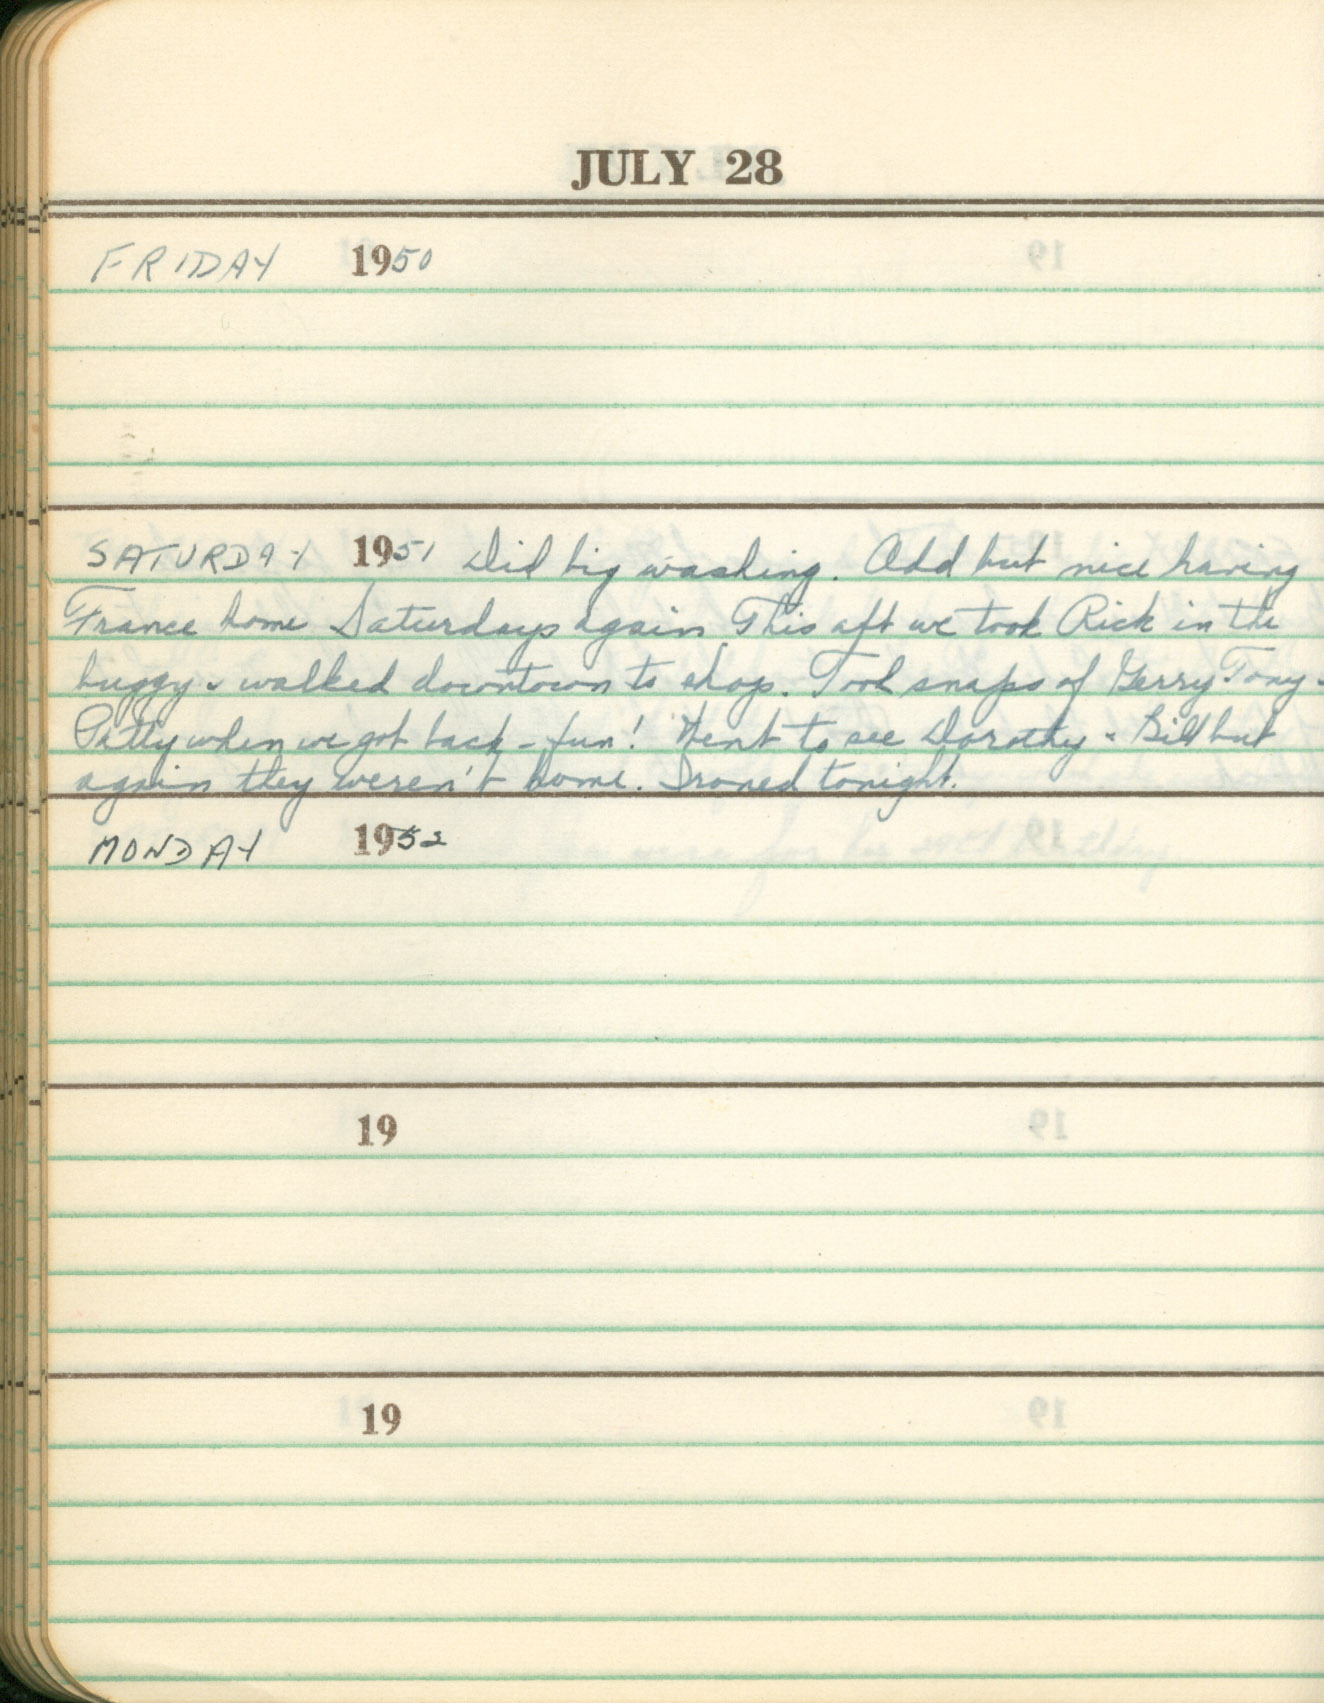 JULY 28
FRIDAY 1950
SATURDAY 1951 Did big washing. Odd but nice having
France home Saturdays again This aft we took Rick in the
buggy & walked downtown to shop. Took snaps of Gerry Tony &
Patty when we got back - fun! Went to see Dorothy & Bill but
again they weren't home. Ironed tonight.
MONDAY 1952
19
19